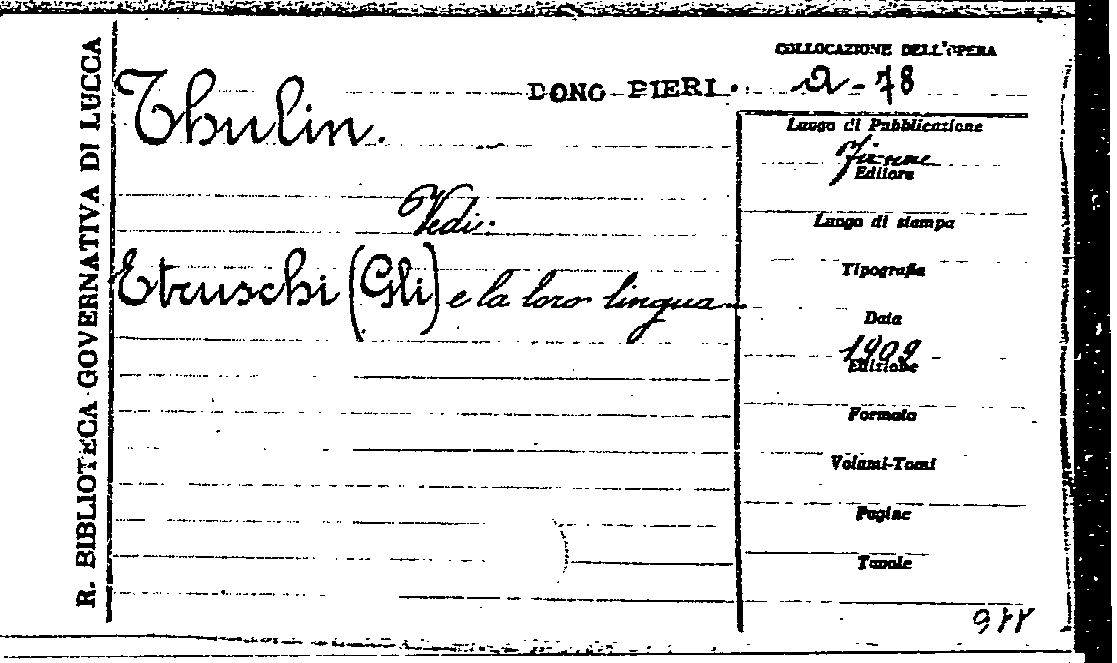 R. BIBLIOTECA GOVERNATIVA DI LUCCA
COLLOCAZIONE DELL'OPERA
DONO PIERI. a - 78
Thulin.
Luogo di Pubblicazione
Firenze
Editore
Vedi:
Luogo di stampa
Etruschi (Gli) e la loro lingua
Tipografia
Data
1909
Edizione
Formato
Volumi-Tomi
Pagine
Tavole